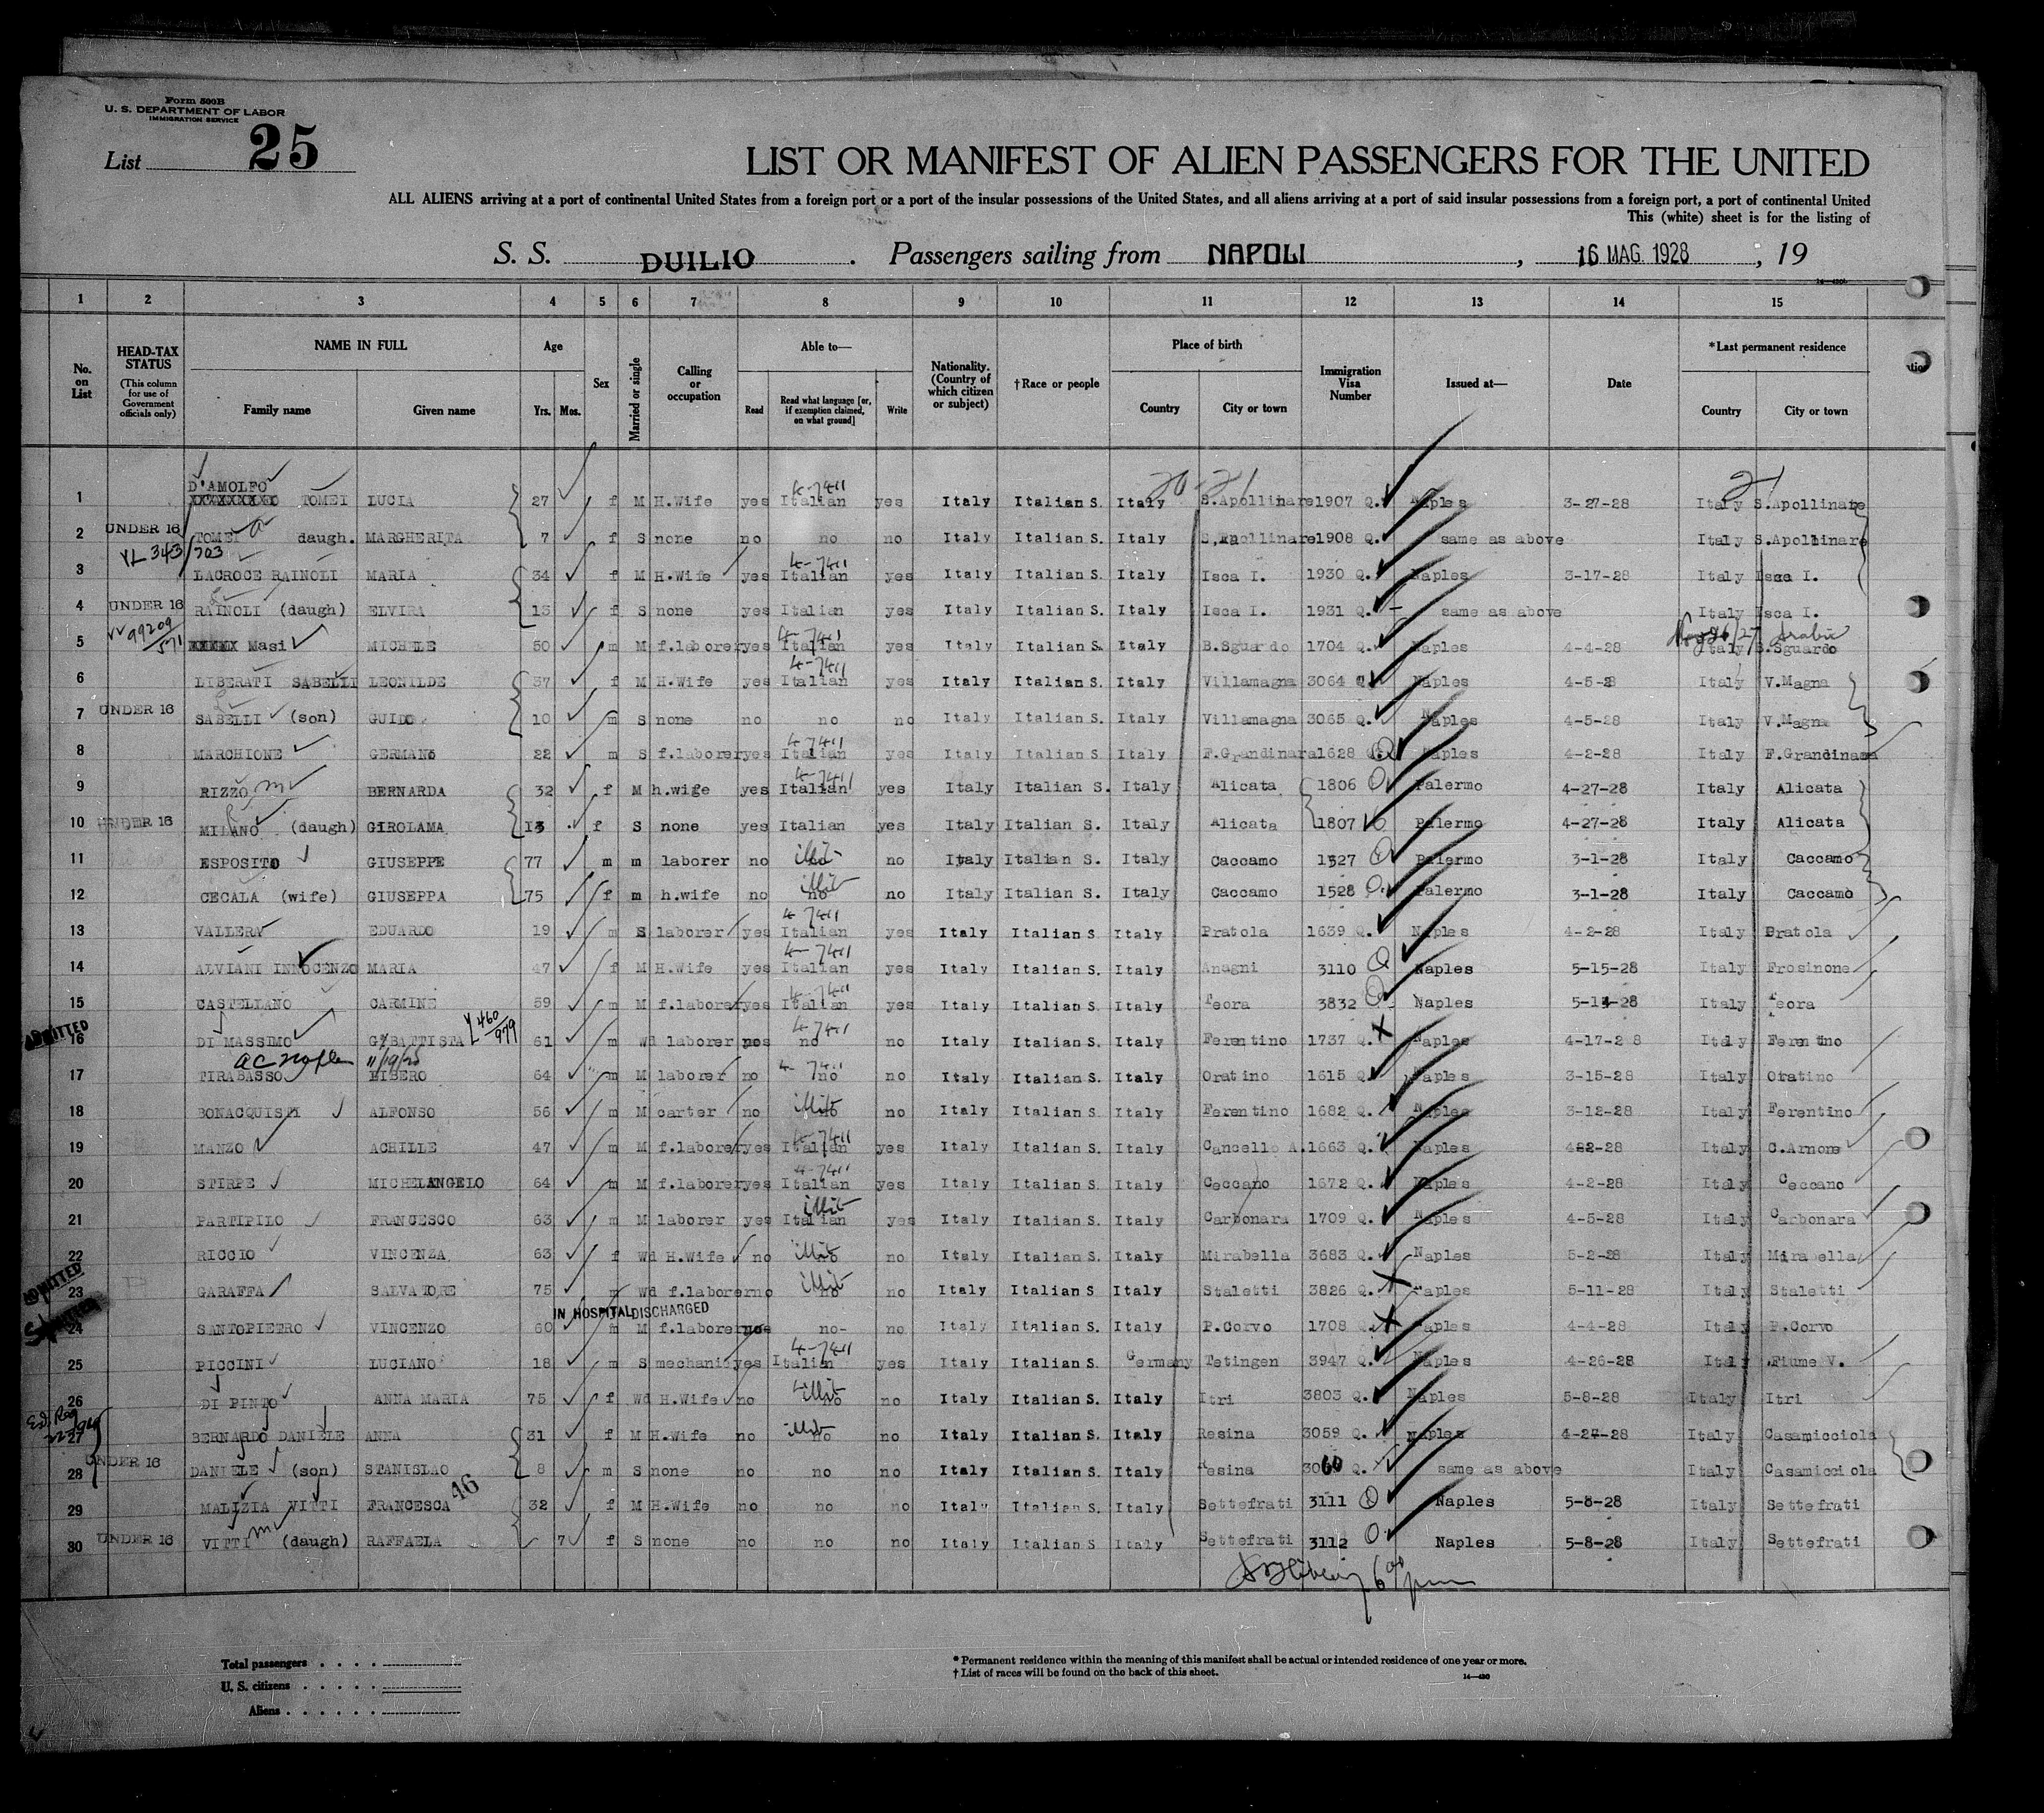 Form 500B
U. S. DEPARTMENT OF LABOR
IMMIGRATION SERVICE
List 25
LIST OR MANIFEST OF ALIEN PASSENGERS FOR THE UNITED
ALL ALIENS arriving at a port of continental United States from a foreign port or a port of the insular possessions of the United States, and all aliens arriving at a port of said insular possessions from a foreign port, a port of continental United
This (white) sheet is for the listing of
S. S. DUILIO . Passengers sailing from NAPOLI , 16 MAG. 1928 , 19
1 2 3 4 5 6 7 8 9 10 11 12 13 14 15
No. on List
HEAD-TAX STATUS (This column for use of Government officials only)
NAME IN FULL Family name Given name
Age Yrs. Mos.
Sex
Married or single
Calling or occupation
Able to— Read Read what language [or, if exemption claimed, on what ground] Write
Nationality. (Country of which citizen or subject)
†Race or people
Place of birth Country City or town
Immigration Visa Number
Issued at—
Date
*Last permanent residence Country City or town
20-21 21
D'AMOLFO 4-7411
1 TOMEI LUCIA 27 f M H.Wife yes Italian yes Italy Italian S. Italy S.Apollinare 1907 Q. Naples 3-27-28 Italy S.Apollinare
2 UNDER 16 TOMEI daugh. MARGHERITA 7 f S none no no no Italy Italian S. Italy S.Apollinare 1908 Q. same as above Italy S.Apollinare
VL 343/703 4-7411
3 LACROCE RAINOLI MARIA 34 f M H.Wife yes Italian yes Italy Italian S. Italy Isca I. 1930 Q. Naples 3-17-28 Italy Isca I.
4 UNDER 16 RAINOLI (daugh) ELVIRA f S none yes Italian yes Italy Italian S. Italy Isca I. 1931 Q. same as above Italy Isca I.
99209/571 4-7411
5 Masi MICHELE 50 m M f.laborer yes Italian yes Italy Italian S. Italy B.Sguardo 1704 Q. Naples 4-4-28 Italy B.Sguardo
4-7411
6 LIBERATI SABELLI LEONILDE 37 f M H.Wife yes Italian yes Italy Italian S. Italy Villamagna 3064 Q. Naples 4-5-28 Italy V.Magna
7 UNDER 16 SABELLI (son) GUIDO 10 m S none no no no Italy Italian S. Italy Villamagna 3065 Q. Naples 4-5-28 Italy V.Magna
4-7411
8 MARCHIONE GERMANO 22 m S f.laborer yes Italian yes Italy Italian S. Italy F.Grandinara 1628 Q. Naples 4-2-28 Italy F.Grandinara
4-7411
9 RIZZO m BERNARDA 32 f M h.wife yes Italian yes Italy Italian S. Italy Alicata 1806 Q Palermo 4-27-28 Italy Alicata
10 UNDER 16 MILANO (daugh) GIROLAMA 13 f S none yes Italian yes Italy Italian S. Italy Alicata 1807 Q Palermo 4-27-28 Italy Alicata
11 ESPOSITO GIUSEPPE 77 m m laborer no no illit no Italy Italian S. Italy Caccamo 1527 Q Palermo 3-1-28 Italy Caccamo
12 CECALA (wife) GIUSEPPA 75 f m h.wife no no illit no Italy Italian S. Italy Caccamo 1528 Q. Palermo 3-1-28 Italy Caccamo
4-7411
13 VALLERA EDUARDO 19 m S laborer yes Italian yes Italy Italian S Italy Pratola 1639 Q. Naples 4-2-28 Italy Pratola
4-7411
14 ALVIANI INNOCENZO MARIA 47 f M H.Wife yes Italian yes Italy Italian S. Italy Anagni 3110 Q Naples 5-15-28 Italy Frosinone
4-7411
15 CASTELLANO CARMINE 59 m M f.laborer yes Italian yes Italy Italian S. Italy Teora 3832 Q Naples 5-14-28 Italy Teora
ADMITTED 4-7411
16 DI MASSIMO G.BATTISTA 460/979 61 m Wd laborer no no no Italy Italian S. Italy Ferentino 1737 Q. Naples 4-17-28 Italy Ferentino
4-7411
17 TIRABASSO MISERO 64 m M laborer no no no Italy Italian S. Italy Oratino 1615 Q. Naples 3-15-28 Italy Oratino
18 BONACQUISTI ALFONSO 56 m M carter no no illit no Italy Italian S. Italy Ferentino 1682 Q. Naples 3-12-28 Italy Ferentino
4-7411
19 MANZO ACHILLE 47 m M f.laborer yes Italian yes Italy Italian S. Italy Cancello A. 1663 Q. Naples Italy C.Arnone
4-7411
20 STIRPE MICHELANGELO 64 m M f.laborer yes Italian yes Italy Italian S. Italy Ceccano 1672 Q. Naples 4-2-28 Italy Ceccano
21 PARTIPILO FRANCESCO 63 m M laborer yes Italian illit yes Italy Italian S. Italy Carbonara 1709 Q. Naples 4-5-28 Italy Carbonara
22 RICCIO VINCENZA 63 f Wd H.Wife no no illit no Italy Italian S. Italy Mirabella 3683 Q. Naples 5-2-28 Italy Mirabella
ADMITTED
23 GARAFFA SALVATORE 75 m Wd f.laborer no no illit no Italy Italian S Italy Staletti 3826 Q. Naples 5-11-28 Italy Staletti
IN HOSPITAL DISCHARGED
24 SANTOPIETRO VINCENZO 60 m M f.laborer no no- no Italy Italian S. Italy P.Corvo 1708 Q. Naples 4-4-28 Italy P.Corvo
4-7411
25 PICCINI LUCIANO 18 m S mechanic yes Italian yes Italy Italian S. Germany Tetingen 3947 Q. Naples 4-26-28 Italy Fiume V.
26 DI PINTO ANNA MARIA 75 f Wd H.Wife no no illit no Italy Italian S. Italy Itri 3803 Q. Naples 5-8-28 Italy Itri
27 BERNARDO DANIELE ANNA 31 f M H.Wife no no illit no Italy Italian S. Italy Resina 3059 Q. Naples 4-27-28 Italy Casamicciola
28 UNDER 16 DANIELE (son) STANISLAO 8 m S none no no no Italy Italian S. Italy Resina 3060 Q. same as above Italy Casamicciola
46
29 MALIZIA VITTI FRANCESCA 32 f M H.Wife no no no Italy Italian S. Italy Settefrati 3111 Q Naples 5-8-28 Italy Settefrati
30 UNDER 16 VITTI m (daugh) RAFFAELA 7 f S none no no no Italy Italian S Italy Settefrati 3112 Q. Naples 5-8-28 Italy Settefrati
Total passengers . . . .
U. S. citizens . . . . .
Aliens . . . . . .
* Permanent residence within the meaning of this manifest shall be actual or intended residence of one year or more.
† List of races will be found on the back of this sheet.
14—430